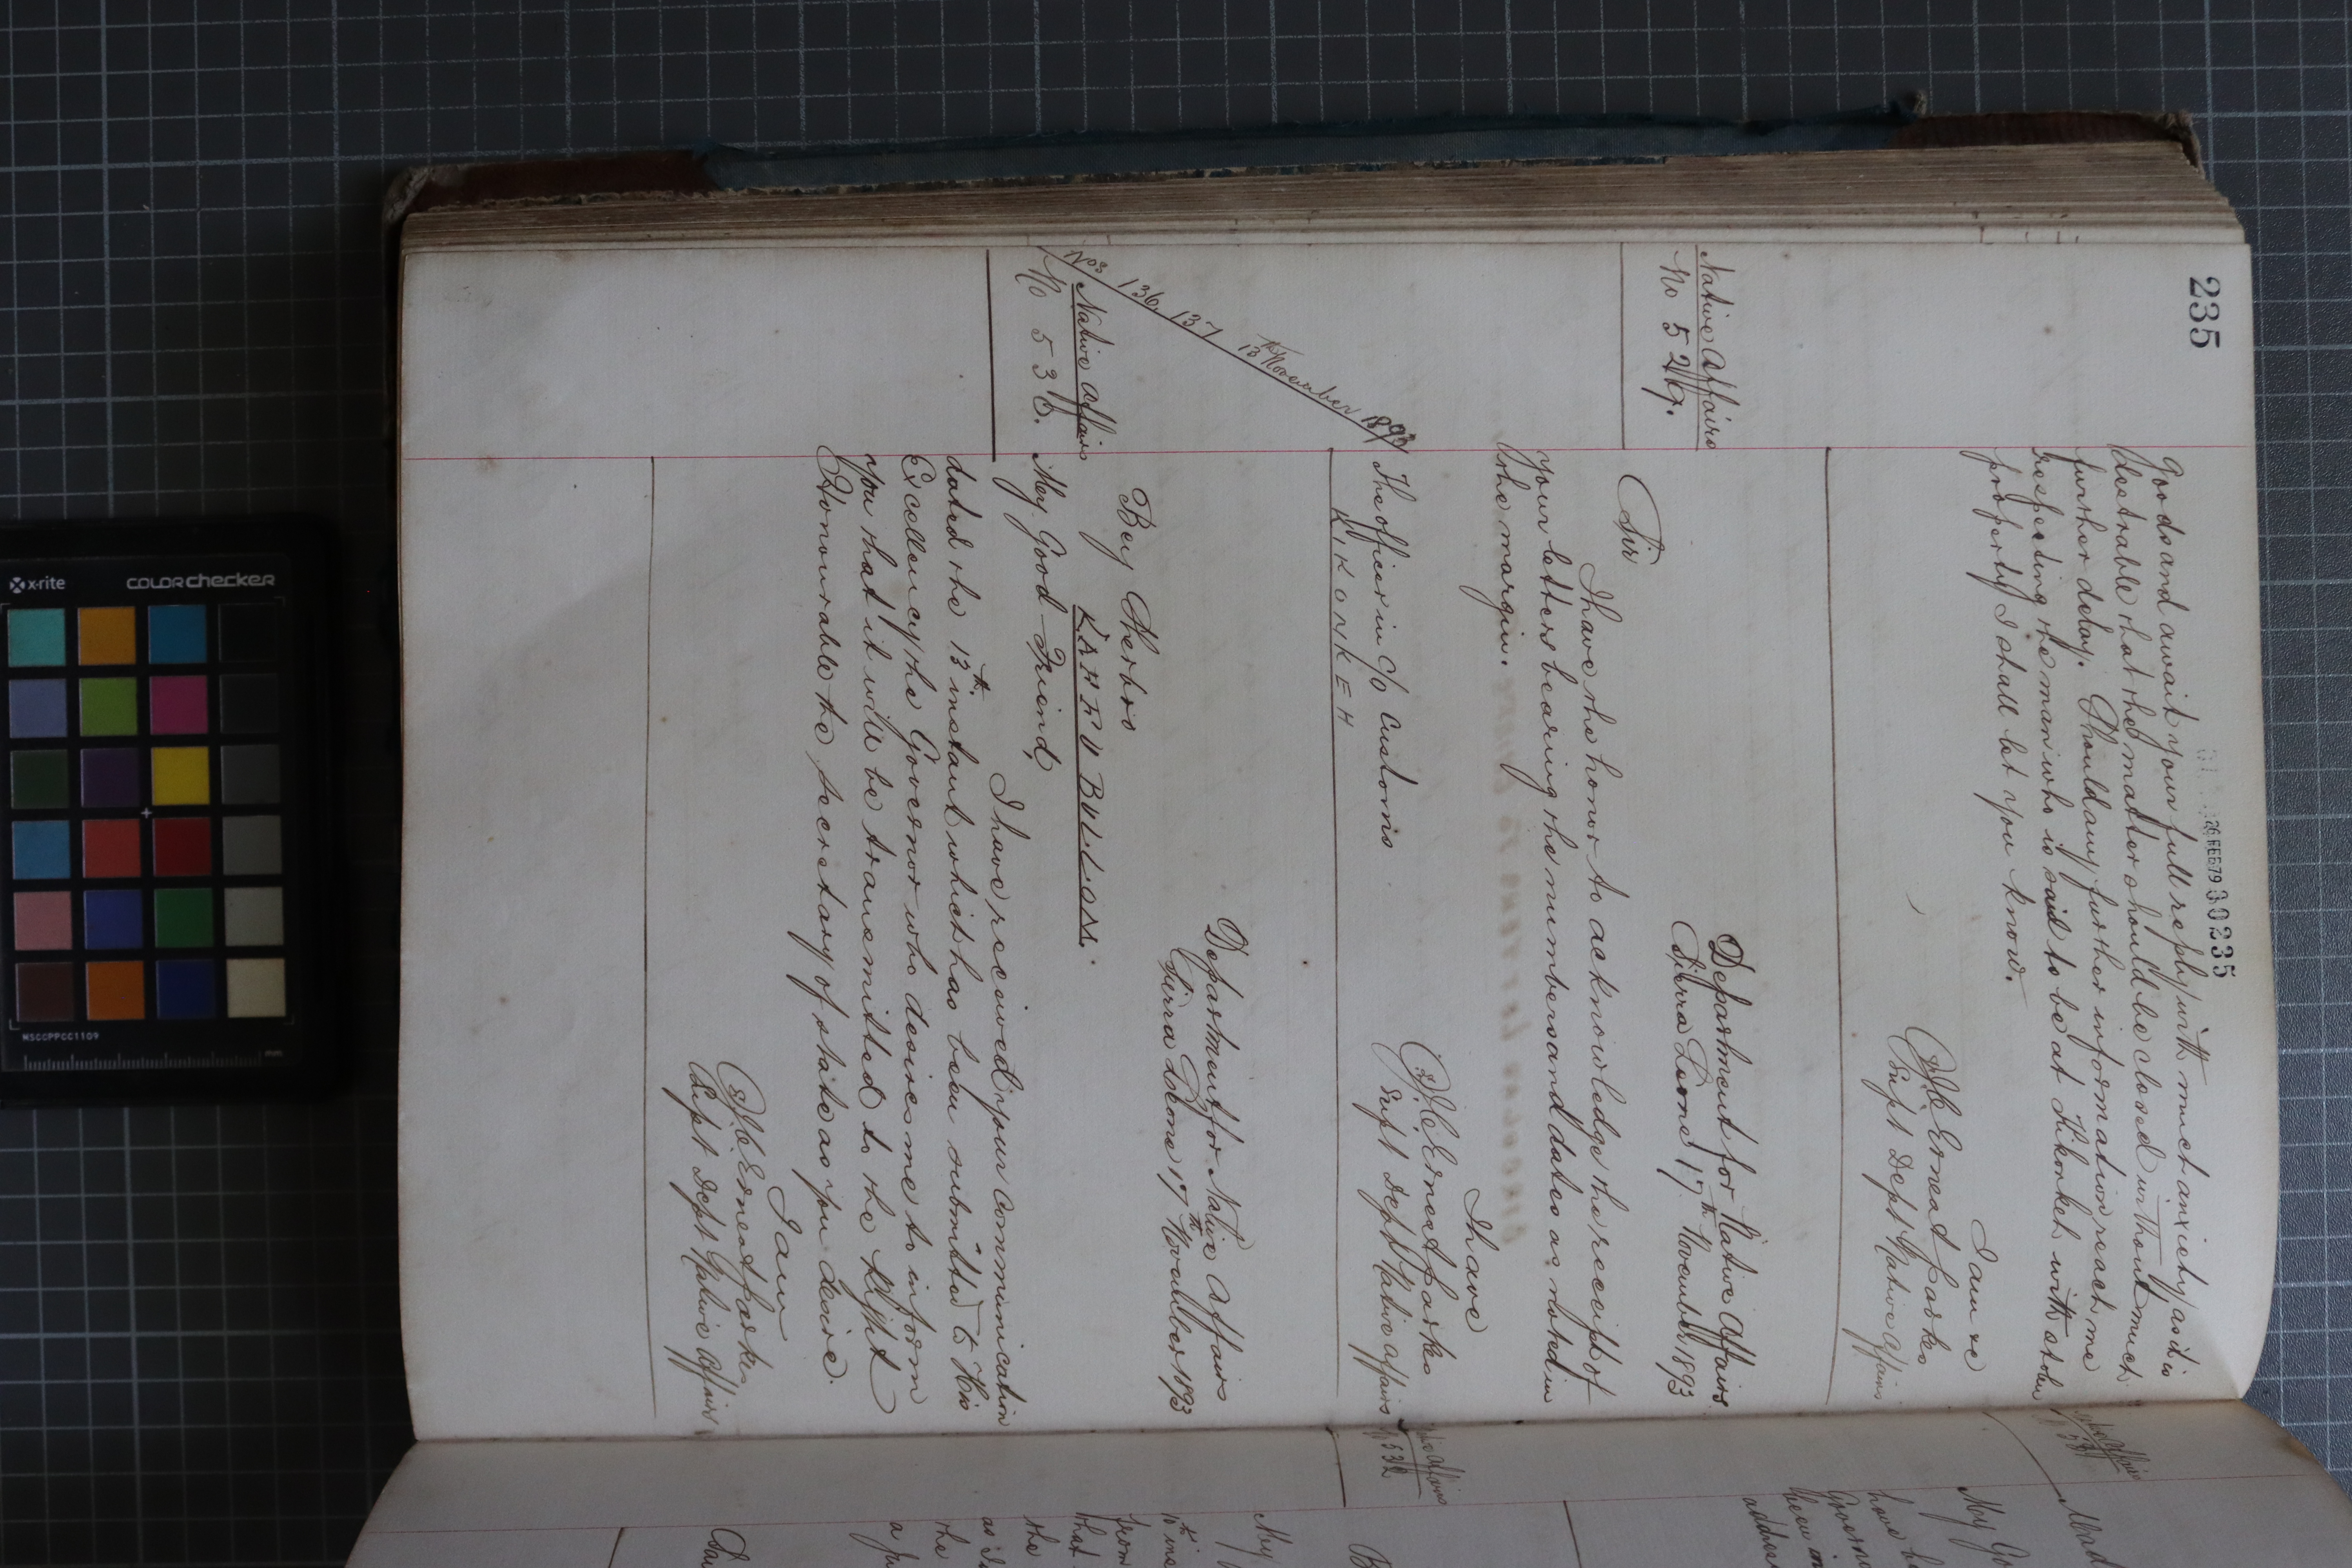 235
26 FEB 79 30235
Goods and await your full reply with much anxiety as it is
desirable that the matter should be closed without much
further delay. Should any further information reach me
respecting the man who is said to be at Kikonkeh with stolen
property I shall let you know.
I am &c
J.C. Ernest Parkes
Supt Dept Native Affairs
Native Affairs
No 529.
Department for Native Affairs
Sierra Leone 17th November 1893
Sir
I have the honor to acknowledge the receipt of
your letters bearing the numbers and dates as noted in
the margin.
Nos 136, 137 13th November 1893
I have
J.C. Ernest Parkes
Supt Dept Native Affairs
The officer in c/o Customs
KIKONKEH
Native Affairs
No 530.
Department for Native Affairs
Sierra Leone 17th November 1893
Bey Sherbro
KAFFU BULLOM.
My Good Friend,
I have received your communication
dated the 13th instant which has been submitted to His
Excellency the Governor who desires me to inform
you that it will be transmitted to the Right
Honourable the Secretary of State as you desire.
I am
J.C. Ernest Parkes
Supt Dept Native Affairs
Native Affairs
532
My Go
have
Governo
been in
address
B
My
from
that
the
as
the
a
x-rite
colorchecker
MSCCPPCC1109
mm